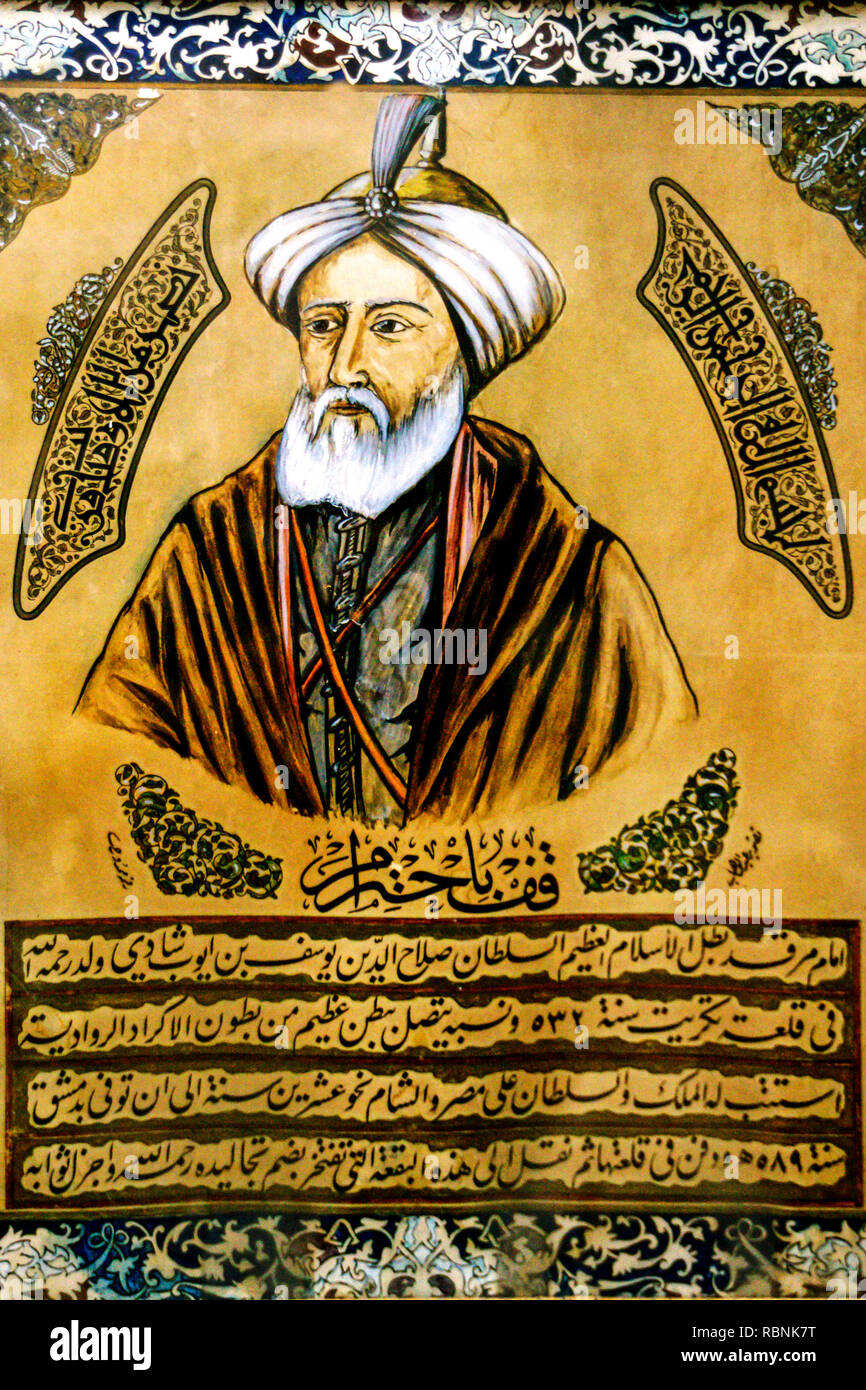 بسم الله الرحمن الرحيم
نصر من الله وفتح قريب
قف باحترام
امام مرقد بطل الأسلام العظيم السلطان صلاح الدّين يوسف بن ايوب شادي ولد رحمه الله
فى قلعة تكريت سنة ٥٣٢ ونسبه يتصل ببطن عظيم من بطون الاكراد الروادية
استتب له الملك والسلطان على مصر والشام نحو عشرين سنة الى ان توفى بدمشق
سنة ٥٨٩ هـ ودفن فى قلعتها ثم نقل الى هذه البقعة التى تفتخر بضم تجاليده رحمه الله واجزل ثوابه
alamy
a
alamy
a
alamy
Image ID: RBNK7T
www.alamy.com